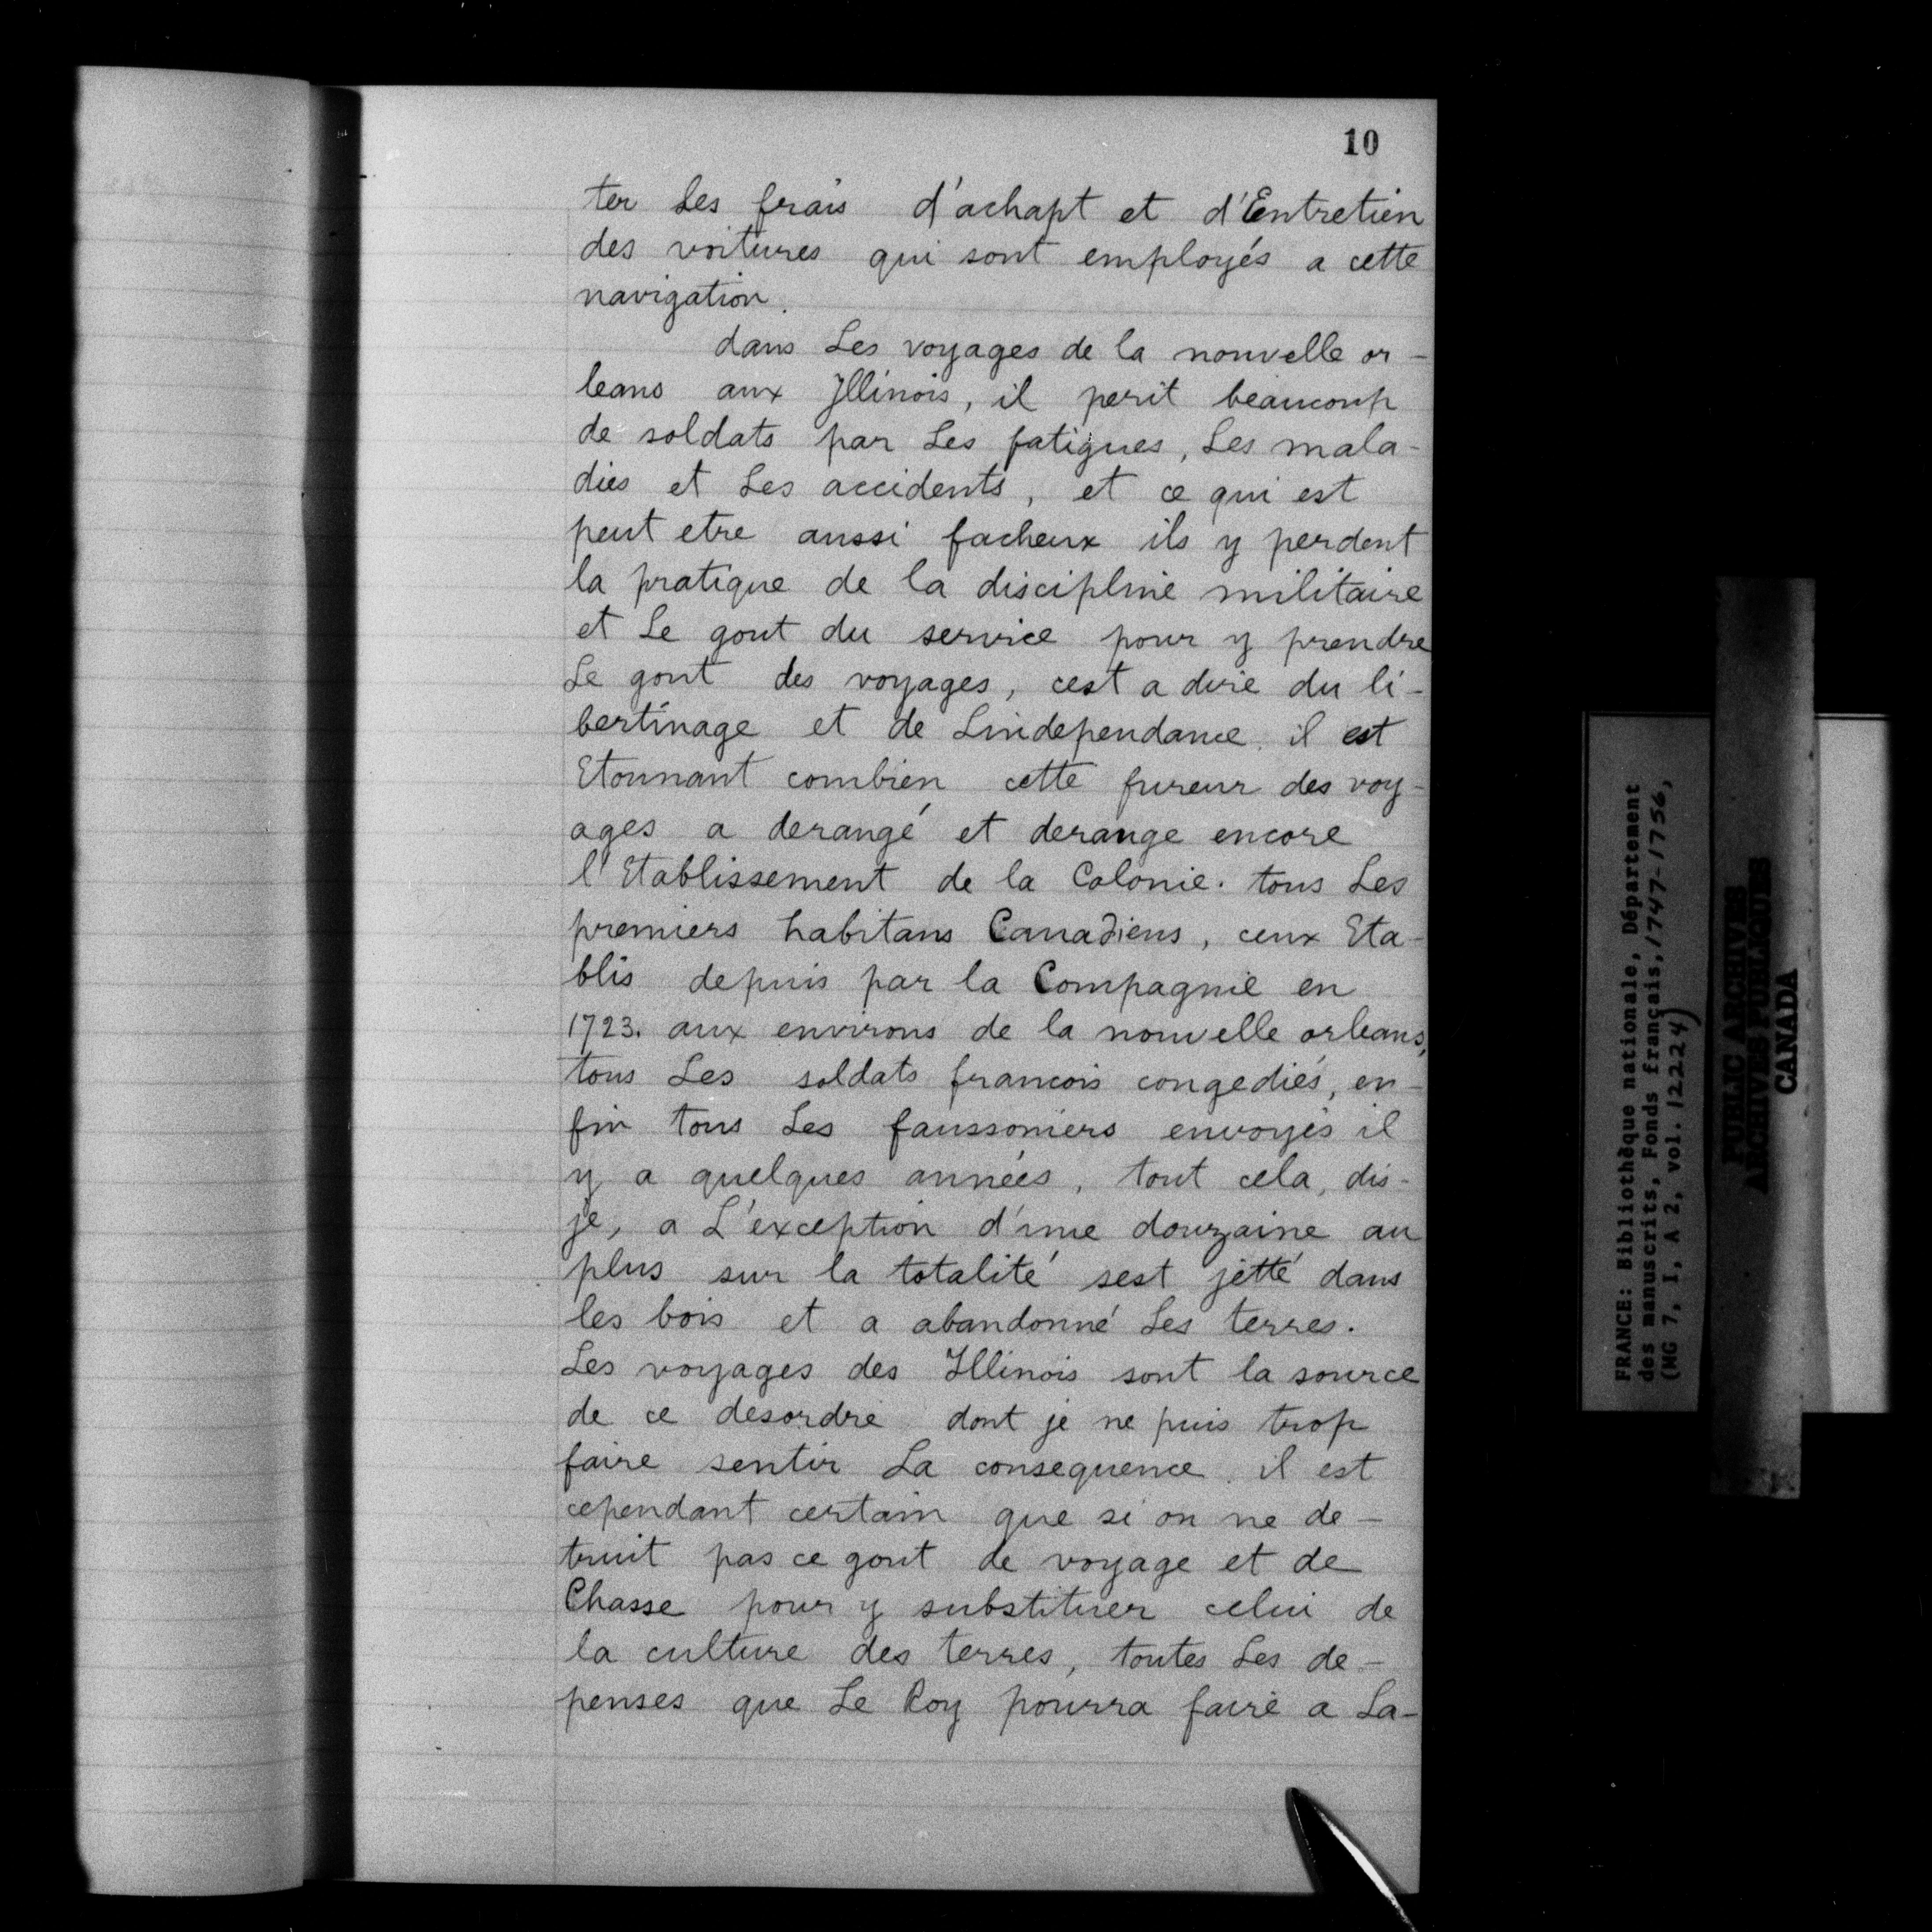 10
ter Les frais d'achapt et d'Entretien
des voitures qui sont employés a cette
navigation.
dans Les voyages de la nouvelle or-
leans aux Illinois, il perit beaucoup
de soldats par Les fatigues, Les mala-
dies et Les accidents, et ce qui est
peut etre aussi facheux ils y perdent
la pratique de la discipline militaire
et Le gout du service pour y prendre
Le gout des voyages, cest a dire du li-
bertinage et de Lindependance. il est
Etonnant combien cette fureur des voy-
ages a derangé et derange encore
l'Etablissement de la Colonie. tous Les
premiers habitans Canadiens, ceux Eta-
blis depuis par la Compagnie en
1723. aux environs de la nouvelle orleans,
tous Les soldats francois congediés, en-
fin tous Les faussoniers envoyés il
y a quelques années, tout cela, dis-
je, a L'exception d'une douzaine au
plus sur la totalité sest jetté dans
les bois et a abandonné Les terres.
Les voyages des Illinois sont la source
de ce desordre dont je ne puis trop
faire sentir La consequence. il est
cependant certain que si on ne de-
truit pas ce gout de voyage et de
Chasse pour y substituer celui de
la culture des terres, toutes Les de-
penses que Le Roy pourra faire a La-
FRANCE: Bibliothèque nationale, Département
des manuscrits, Fonds français, 1747-1756,
(MG 7, I, A 2, vol. 12224)
PUBLIC ARCHIVES
ARCHIVES PUBLIQUES
CANADA